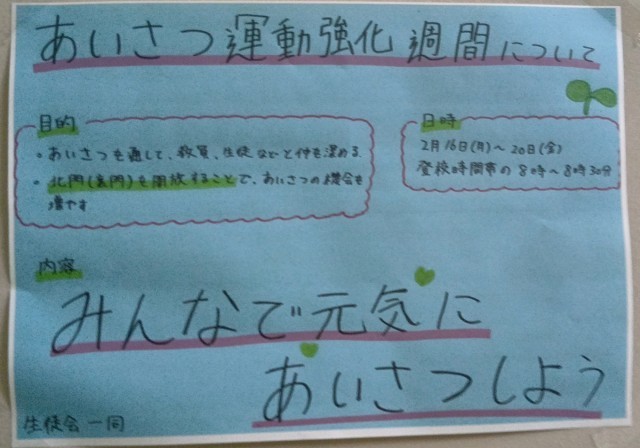 あいさつ運動強化週間について
目的
・あいさつを通して、教員、生徒などと仲を深める
・北門(裏門)を開放することで、あいさつの機会を
増やす
日時
2月16日(月)～20日(金)
登校時間帯の8時～8時30分
内容
みんなで元気に
あいさつしよう
生徒会一同